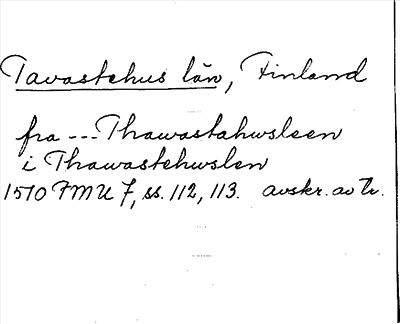 Tavastehus län, Finland
fra --- Thawastahwsleen
i Thawastehwslen
1510 FMU 7, ss. 112, 113. avskr. av Tr.